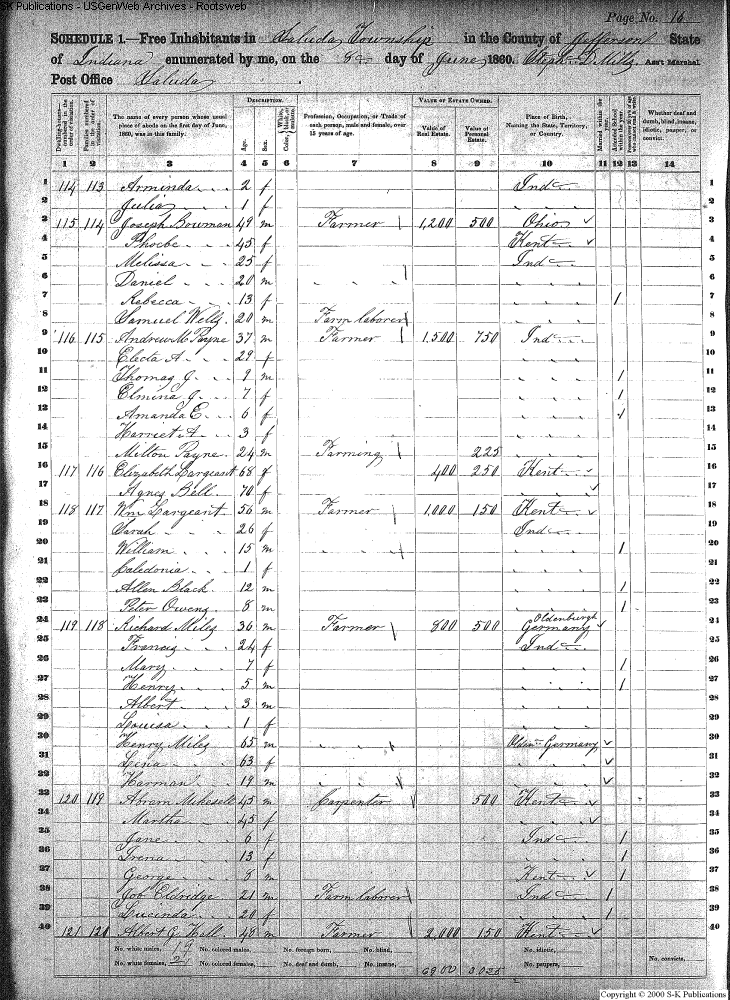 S-K Publications - USGenWeb Archives - Rootsweb
Page No. 16
SCHEDULE 1.—Free Inhabitants in Saluda Township in the County of Jefferson State
of Indiana enumerated by me, on the 8 day of June 1860. Steph D. Mills Ass't Marshal
Post Office Saluda
DESCRIPTION. VALUE OF ESTATE OWNED.
Dwelling-houses—numbered in the order of visitation. Families numbered in the order of visitation. The name of every person whose usual place of abode on the first day of June, 1860, was in this family. Age. Sex. Color, Profession, Occupation, or Trade of each person, male and female, over 15 years of age. Value of Real Estate. Value of Personal Estate. Place of Birth, Naming the State, Territory, or Country. Married within the year. Attended School within the year. Whether deaf and dumb, blind, insane, idiotic, pauper, or convict.
1 2 3 4 5 6 7 8 9 10 11 12 13 14
1 114 113 Arminda 2 f Ind 1
2 Julia 1 f 2
3 115 114 Joseph Bowman 49 m Farmer 1,200 500 Ohio 3
4 Phoebe 45 f Kent 4
5 Melissa 25 f Ind 5
6 Daniel 20 m 6
7 Rebecca 13 f 7
8 Samuel Wells 20 m Farm laborer 8
9 116 115 Andrew M Payne 37 m Farmer 1,500 750 Ind 9
10 Electa A 29 f 10
11 Thomas J 9 m 11
12 Elmina J 7 f 12
13 Amanda E 6 f 13
14 Harriet A 3 f 14
15 Milton Payne 24 m Farming 225 15
16 117 116 Elizabeth Largeant 68 f 400 250 Kent 16
17 Agnes Bell 70 f 17
18 118 117 Wm Largeant 56 m Farmer 1,000 150 Kent 18
19 Sarah 26 f Ind 19
20 William 15 m 20
21 Caledonia 1 f 21
22 Allen Black 12 m 22
23 Peter Owens 8 m 23
24 119 118 Richard Miles 36 m Farmer 800 500 Oldenburgh Germany 24
25 Frances 24 f Ind 25
26 Mary 7 f 26
27 Henry 5 m 27
28 Albert 3 m 28
29 Louisa 1 f 29
30 Henry Miles 65 m Olden Germany 30
31 Lena 63 f 31
32 Harman 19 m 32
33 120 119 Abram Mikesell 45 m Carpenter 500 Kent 33
34 Martha 45 f 34
35 Jane 6 f Ind 35
36 Irena 13 f 36
37 George 8 m Kent 37
38 Job Eldridge 21 m Farm laborer Ind 38
39 Lucinda 20 f 39
40 121 120 Albert G Hall 48 m Farmer 2,000 150 Kent 40
No. white males, 19 No. colored males, No. foreign born, No. blind, No. idiotic,
No. white females, 21 No. colored females, No. deaf and dumb, No. insane, 6900 3025 No. paupers, No. convicts,
Copyright © 2000 S-K Publications